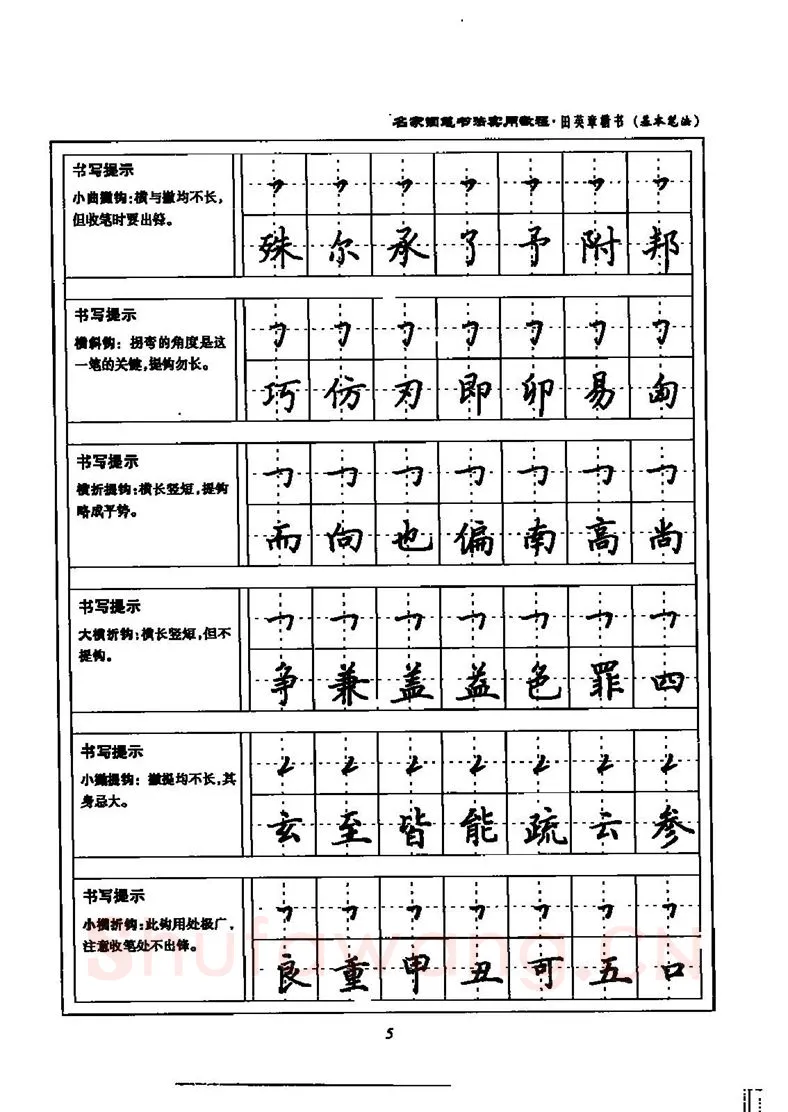 名家钢笔书法实用教程·田英章楷书（基本笔法）
书写提示
小曲撇钩：横与撇均不长，
但收笔时要出锋。
殊尔承了予附邦
书写提示
横斜钩：拐弯的角度是这
一笔的关键，提钩勿长。
巧仿刃即卯易匈
书写提示
横折提钩：横长竖短，提钩
略成平势。
而向也偏南高尚
书写提示
大横折钩：横长竖短，但不
提钩。
争兼盖益色罪四
书写提示
小撇提钩：撇提均不长，其
身忌大。
玄至皆能疏云参
书写提示
小横折钩：此钩用处极广，
注意收笔处不出锋。
良重甲丑可五口
Shufawang.CN
5